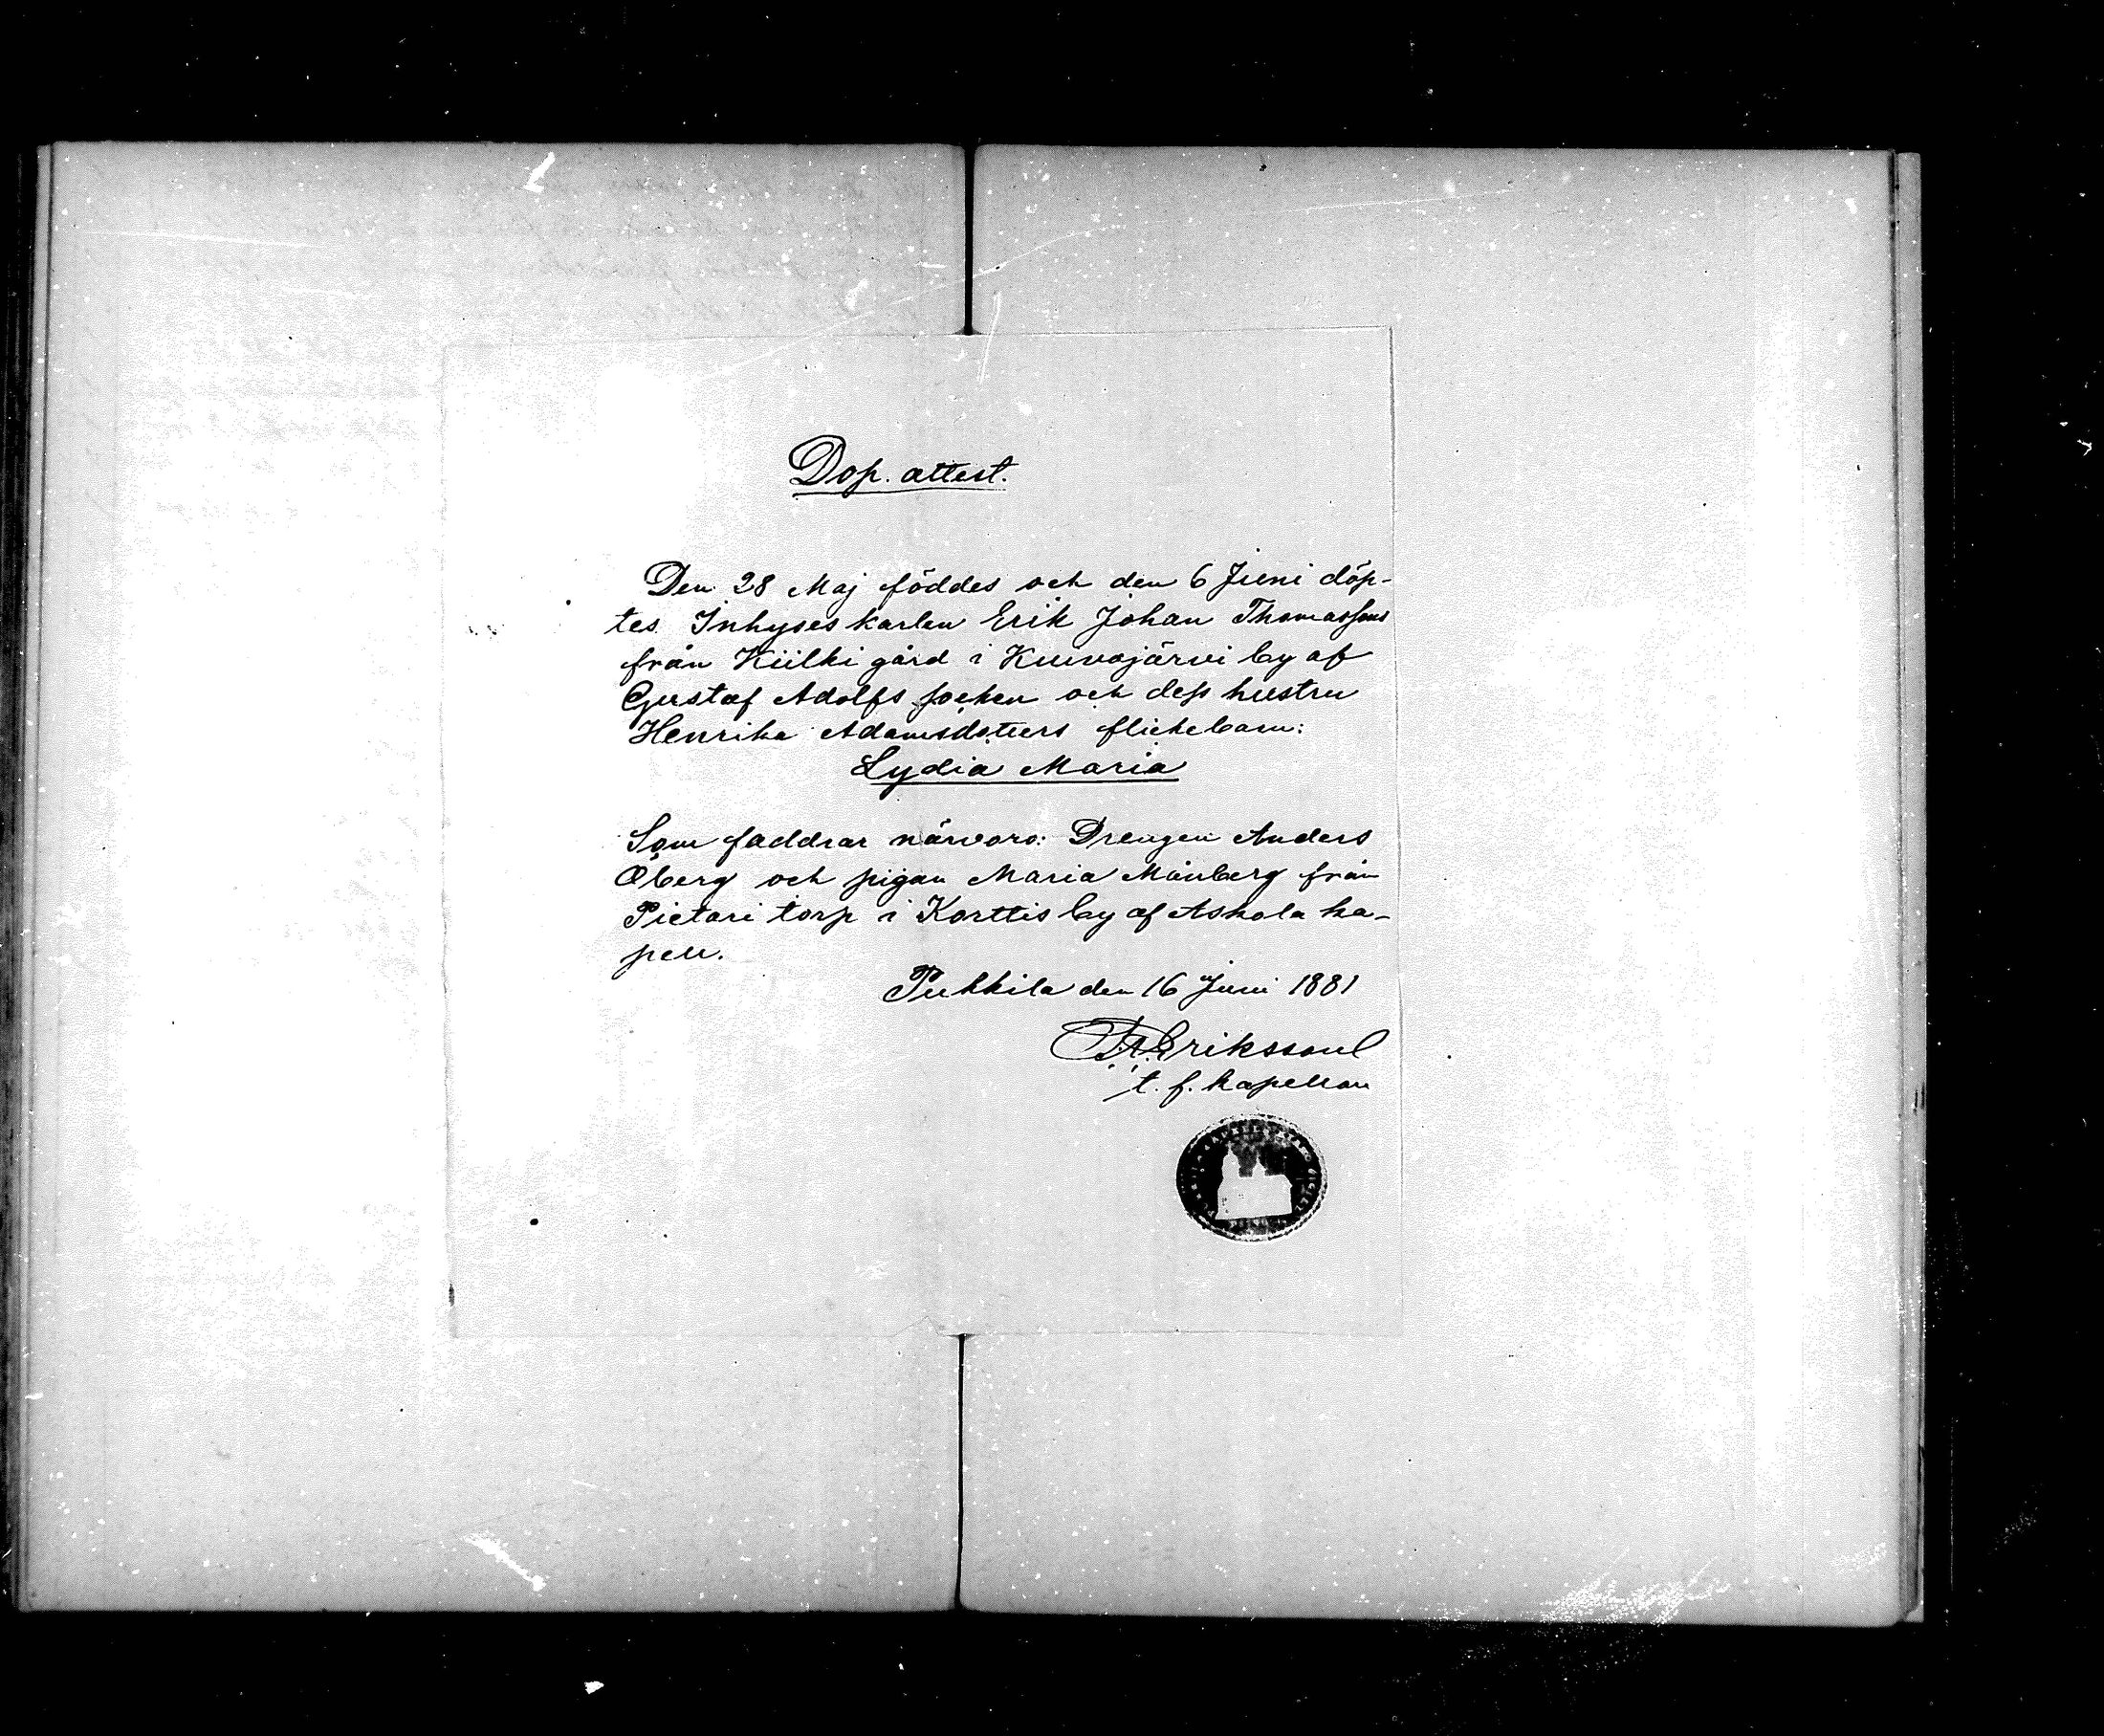 Dop. attest.
Den 28 Maj föddes och den 6 Juni döp-
tes Inhyseskarlen Erik Johan Thomassons
från Kiilki gård i Kuivajärvi by af
Gustaf Adolfs socken och dess hustru
Henrika Adamsdotters flickebarn:
Lydia Maria
Som faddrar närvoro: Drengen Anders
Öberg och pigan Maria Månberg från
Pietari torp i Korttis by af Askola ka-
pell.
Pukkila den 16 Juni 1881
Erikssoul
t. f. kapellan